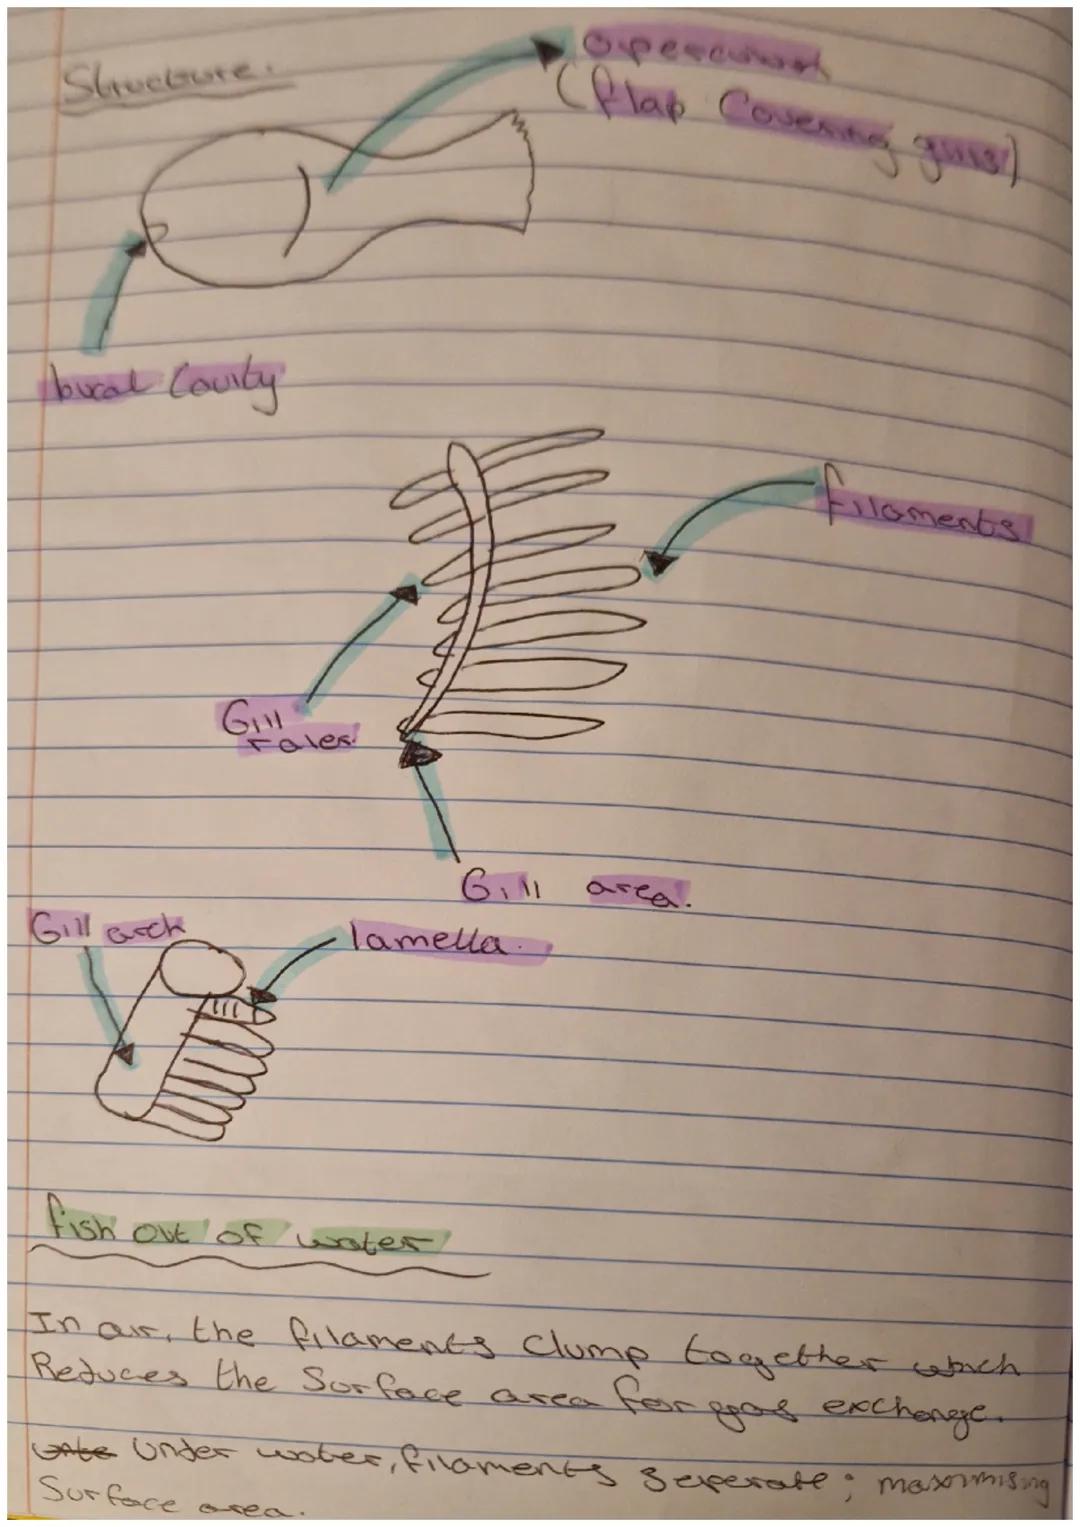 Structure.
operculum
(flap Covering gills)
bucal Cavity
filaments
Gill
rakes.
Gill area.
Gill arch
lamella.
fish out of water
In air, the filaments Clump together which
Reduces the Surface area for gas exchange.
Under water, filaments seperate; maximising
Surface area.